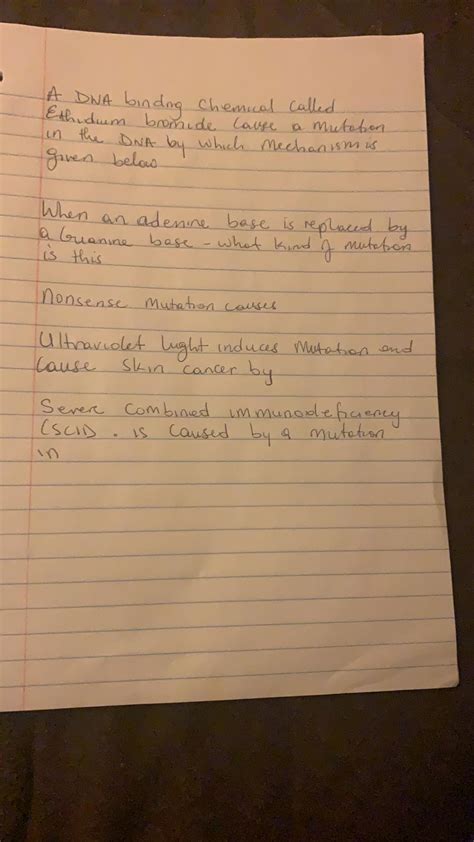 A DNA binding Chemical Called
Ethidium bromide Cause a mutation
in the DNA by which Mechanism is
given below
When an adenine base is replaced by
a Guanine base - what kind of mutation
is this
Nonsense Mutation causes
Ultraviolet light induces Mutation and
Cause Skin cancer by
Severe Combined immunodeficiency
(SCID). is caused by a mutation
in